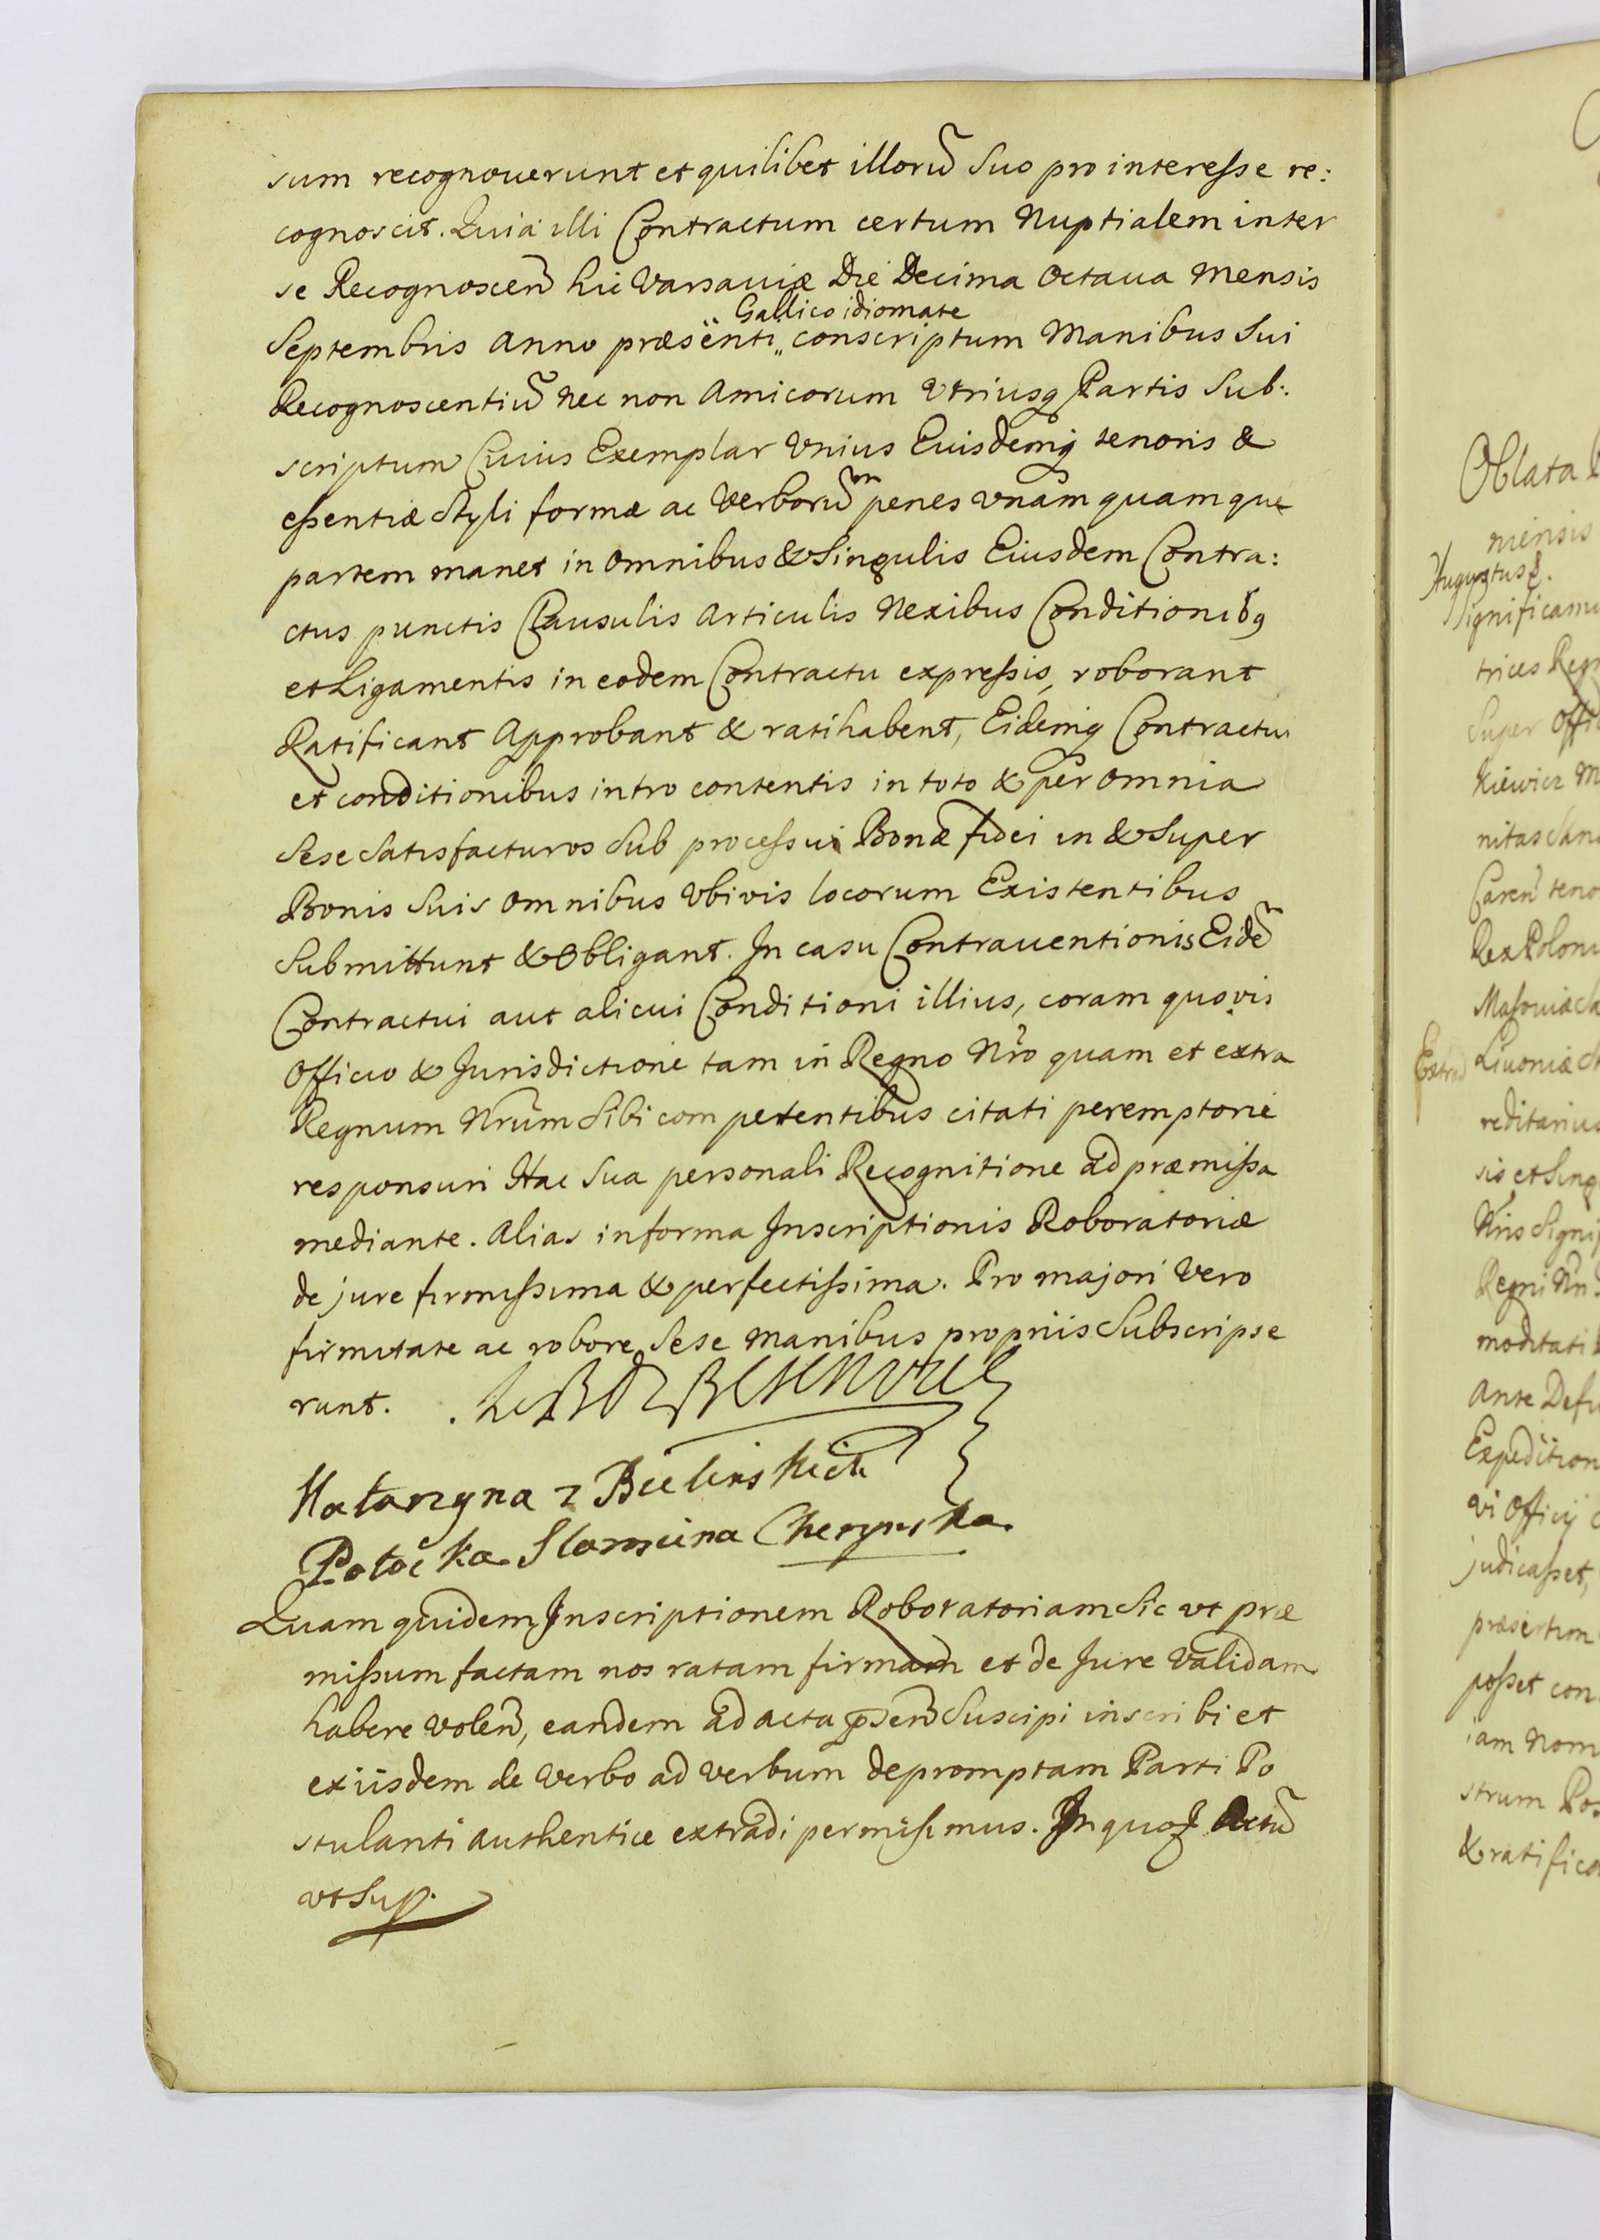 sum recognouerunt et quilibet illorũ Suo pro interesse re:
cognoscit. Quia illi Contractum certum Nuptialem inter
se Recognoscen̄ hic Varsauiæ Die Decima Octaua Mensis
Gallico idiomate
Septembris Anno præsenti „ conscriptum Manibus Sui
Recognoscentiũ nec non Amicorum Vtriusq Partis Sub:
scriptum Cuius Exemplar Vnius Euisdemq tenoris &
essentiæ Styli formæ ac Verborũ penes vnam quamque
partem manet in Omnibus & Singulis Eiusdem Contra:
ctus punctis Clausulis Articulis Nexibus Conditionibq
et Ligamentis in eodem Contractu expressis, roborant
Ratificant Approbant & ratihabent, Eidemq Contractui
et conditionibus intro contentis in toto & per Omnia
Sese Satisfacturos Sub processu Bonæ fidei in & Super
Bonis Suis Omnibus Vbivis locorum Existentibus
Submittunt & Obligant. In casu Contrauentionis Eidẽ
Contractui aut alicui Conditioni illius, coram quovis
Officio & Jurisdictione tam in Regno Nr̃o quam et extra
Regnum Nr̃um Sibi competentibus citati peremptorie
responsuri Hac Sua personali Recognitione ad præmissa
mediante. Alias in forma Inscriptionis Roboratoriæ
de jure firmissima & perfectissima. Pro majori Vero
firmitate ac robore Sese Manibus proprijs Subscripse
runt.
Katarzyna z Bielinskich
Potocka Starościna Cherzynska
Quam quidem Inscriptionem Roboratoriam Sic vt præ
missum factam nos ratam firmam et de Jure Validam
habere volen̄, eandem ad acta p̃sen̄ Suscipi inscribi et
ex iisdem de Verbo ad Verbum depromptam Parti Po
stulanti authentice extradi permisimus. In quo Actũ
vt Sup.
Oblata
niensis
Augustus 2.
Significamu
trices Reg
Super Offic
kiewicz M
nitas San
Caren̄ teno
Rex Polon
Masouiæ Sa
Extrad
Liuoniæ
reditarius
sis, et Sing
Nr̃is Signi
Regni Nr̃i
moditati
Ante Defu
Expedition
vi Officij
judicasset,
præsertim
posset con
iam Nom
strum Pos
& ratifica